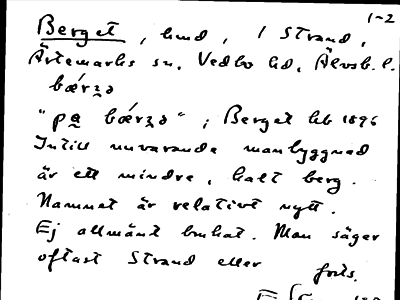 1-2
Berget, hmd, i Strand,
Ärtemarks sn, Vedbo hd, Älvsb. l.
bǽrʒə
"pa bǽrʒə"; Berget lib 1896
Intill nuvarande manbyggnad
är ett mindre, kalt berg.
Namnet är relativt nytt.
Ej allmänt brukat. Man säger
oftast Strand eller forts.